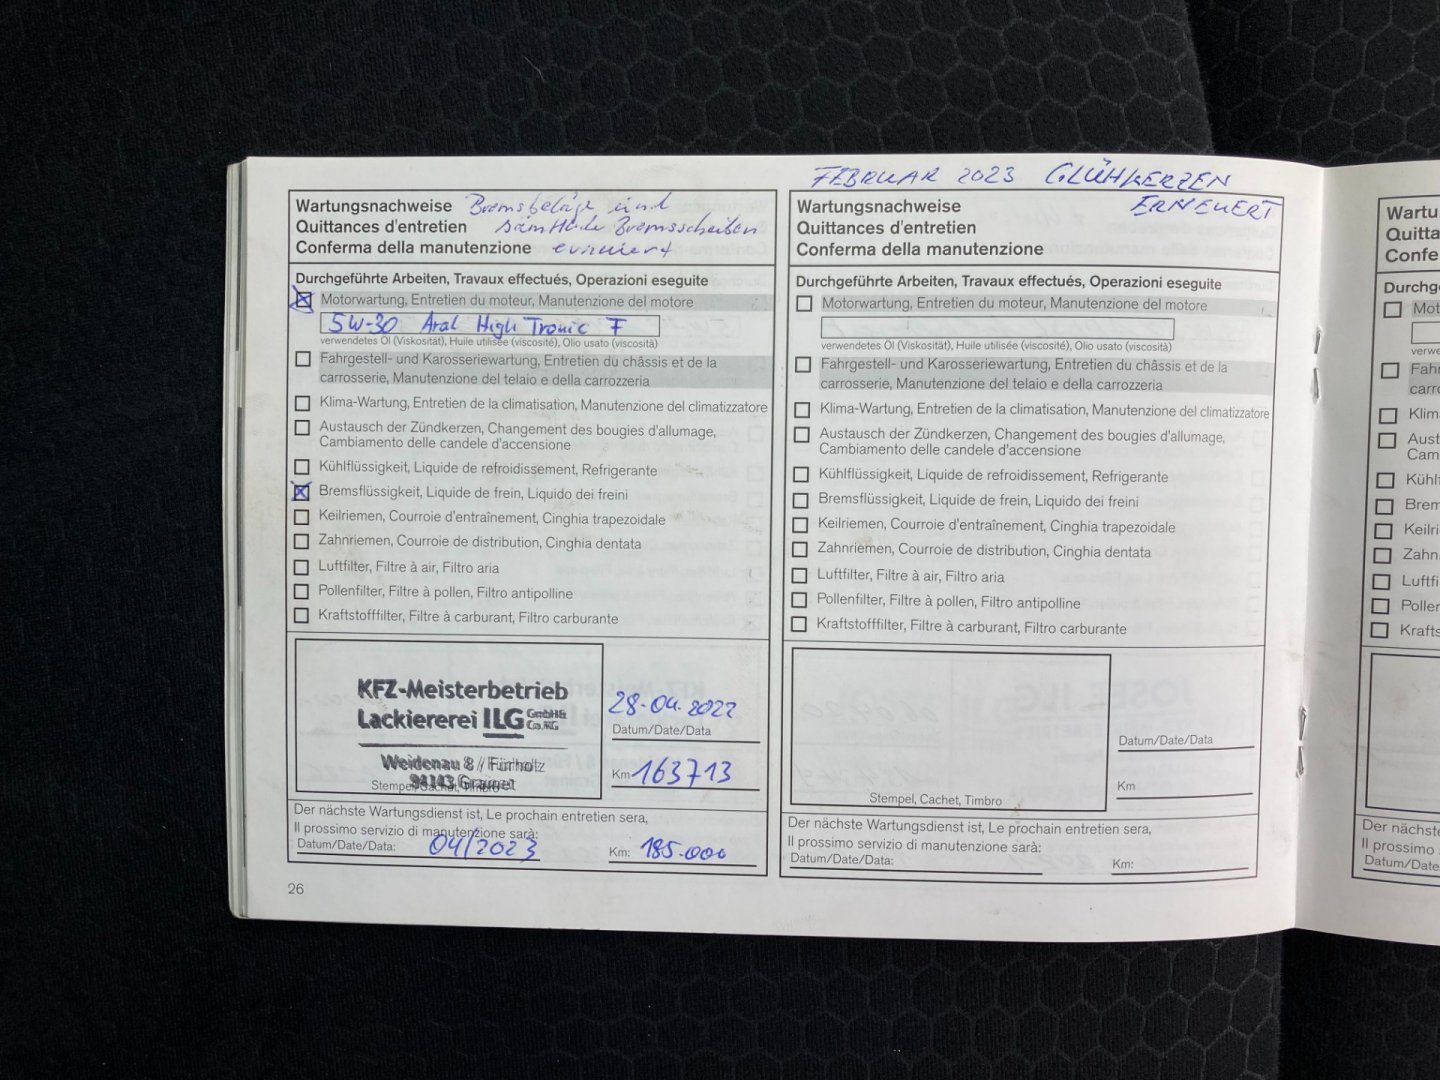 Wartungsnachweise Bremsbeläge und
Quittances d'entretien sämtliche Bremsscheiben
Conferma della manutenzione erneuert
Durchgeführte Arbeiten, Travaux effectués, Operazioni eseguite
Motorwartung, Entretien du moteur, Manutenzione del motore
5W-30 Aral High Tronic F
verwendetes Öl (Viskosität), Huile utilisée (viscosité), Olio usato (viscosità)
Fahrgestell- und Karosseriewartung, Entretien du châssis et de la
carrosserie, Manutenzione del telaio e della carrozzeria
Klima-Wartung, Entretien de la climatisation, Manutenzione del climatizzatore
Austausch der Zündkerzen, Changement des bougies d'allumage,
Cambiamento delle candele d'accensione
Kühlflüssigkeit, Liquide de refroidissement, Refrigerante
Bremsflüssigkeit, Liquide de frein, Liquido dei freini
Keilriemen, Courroie d'entraînement, Cinghia trapezoidale
Zahnriemen, Courroie de distribution, Cinghia dentata
Luftfilter, Filtre à air, Filtro aria
Pollenfilter, Filtre à pollen, Filtro antipolline
Kraftstofffilter, Filtre à carburant, Filtro carburante
KFZ-Meisterbetrieb
Lackiererei ILG GmbH & Co. KG
Weidenau 8 // Fürholz
94143 Grainet
Stempel, Cachet, Timbro
28.04.2022
Datum/Date/Data
Km 163713
Der nächste Wartungsdienst ist, Le prochain entretien sera,
Il prossimo servizio di manutenzione sarà:
Datum/Date/Data: 04/2023 Km: 185.000
26
FEBRUAR 2023 GLÜHKERZEN
ERNEUERT
Wartungsnachweise
Quittances d'entretien
Conferma della manutenzione
Durchgeführte Arbeiten, Travaux effectués, Operazioni eseguite
Motorwartung, Entretien du moteur, Manutenzione del motore
verwendetes Öl (Viskosität), Huile utilisée (viscosité), Olio usato (viscosità)
Fahrgestell- und Karosseriewartung, Entretien du châssis et de la
carrosserie, Manutenzione del telaio e della carrozzeria
Klima-Wartung, Entretien de la climatisation, Manutenzione del climatizzatore
Austausch der Zündkerzen, Changement des bougies d'allumage,
Cambiamento delle candele d'accensione
Kühlflüssigkeit, Liquide de refroidissement, Refrigerante
Bremsflüssigkeit, Liquide de frein, Liquido dei freini
Keilriemen, Courroie d'entraînement, Cinghia trapezoidale
Zahnriemen, Courroie de distribution, Cinghia dentata
Luftfilter, Filtre à air, Filtro aria
Pollenfilter, Filtre à pollen, Filtro antipolline
Kraftstofffilter, Filtre à carburant, Filtro carburante
Stempel, Cachet, Timbro
Datum/Date/Data
Km
Der nächste Wartungsdienst ist, Le prochain entretien sera,
Il prossimo servizio di manutenzione sarà:
Datum/Date/Data: Km:
Wartu
Quitta
Confe
Durchg
Mot
verwe
Fahr
carro
Klima
Aust
Cam
Kühl
Brem
Keilri
Zahn
Luftfi
Pollen
Krafts
Der nächste
Il prossimo s
Datum/Date